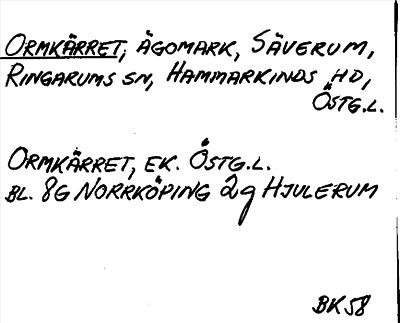 ORMKÄRRET, ÄGOMARK, SÄVERUM,
RINGARUMS SN, HAMMARKINDS HD,
ÖSTG.L.
ORMKÄRRET, EK. ÖSTG.L.
BL. 8G NORRKÖPING 2g HJULERUM
BK 58